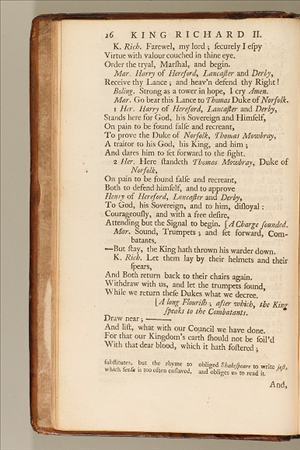 26 KING RICHARD II.
K. Rich. Farewel, my lord; securely I espy
Virtue with valour couched in thine eye.
Order the tryal, Marshal, and begin.
Mar. Harry of Hereford, Lancaster and Derby,
Receive thy Lance; and heav'n defend thy Right!
Boling. Strong as a tower in hope, I cry Amen.
Mar. Go bear this Lance to Thomas Duke of Norfolk.
1 Her. Harry of Hereford, Lancaster and Derby,
Stands here for God, his Sovereign and Himself,
On pain to be found false and recreant,
To prove the Duke of Norfolk, Thomas Mowbray,
A traitor to his God, his King, and him;
And dares him to set forward to the fight.
2 Her. Here standeth Thomas Mowbray, Duke of
Norfolk,
On pain to be found false and recreant,
Both to defend himself, and to approve
Henry of Hereford, Lancaster and Derby,
To God, his Sovereign, and to him, disloyal:
Courageously, and with a free desire,
Attending but the Signal to begin. [A Charge sounded.
Mar. Sound, Trumpets; and set forward, Com-
batants,
—But stay, the King hath thrown his warder down.
K. Rich. Let them lay by their helmets and their
spears,
And Both return back to their chairs again.
Withdraw with us, and let the trumpets sound,
While we return these Dukes what we decree.
[A long Flourish; after which, the King
speaks to the Combatants.
Draw near;
And list, what with our Council we have done.
For that our Kingdom's earth should not be soil'd
With that dear blood, which it hath fostered;
substitutes, but the rhyme to
which sense is too often enslaved,
obliged Shakespeare to write jest,
and obliges us to read it.
And,